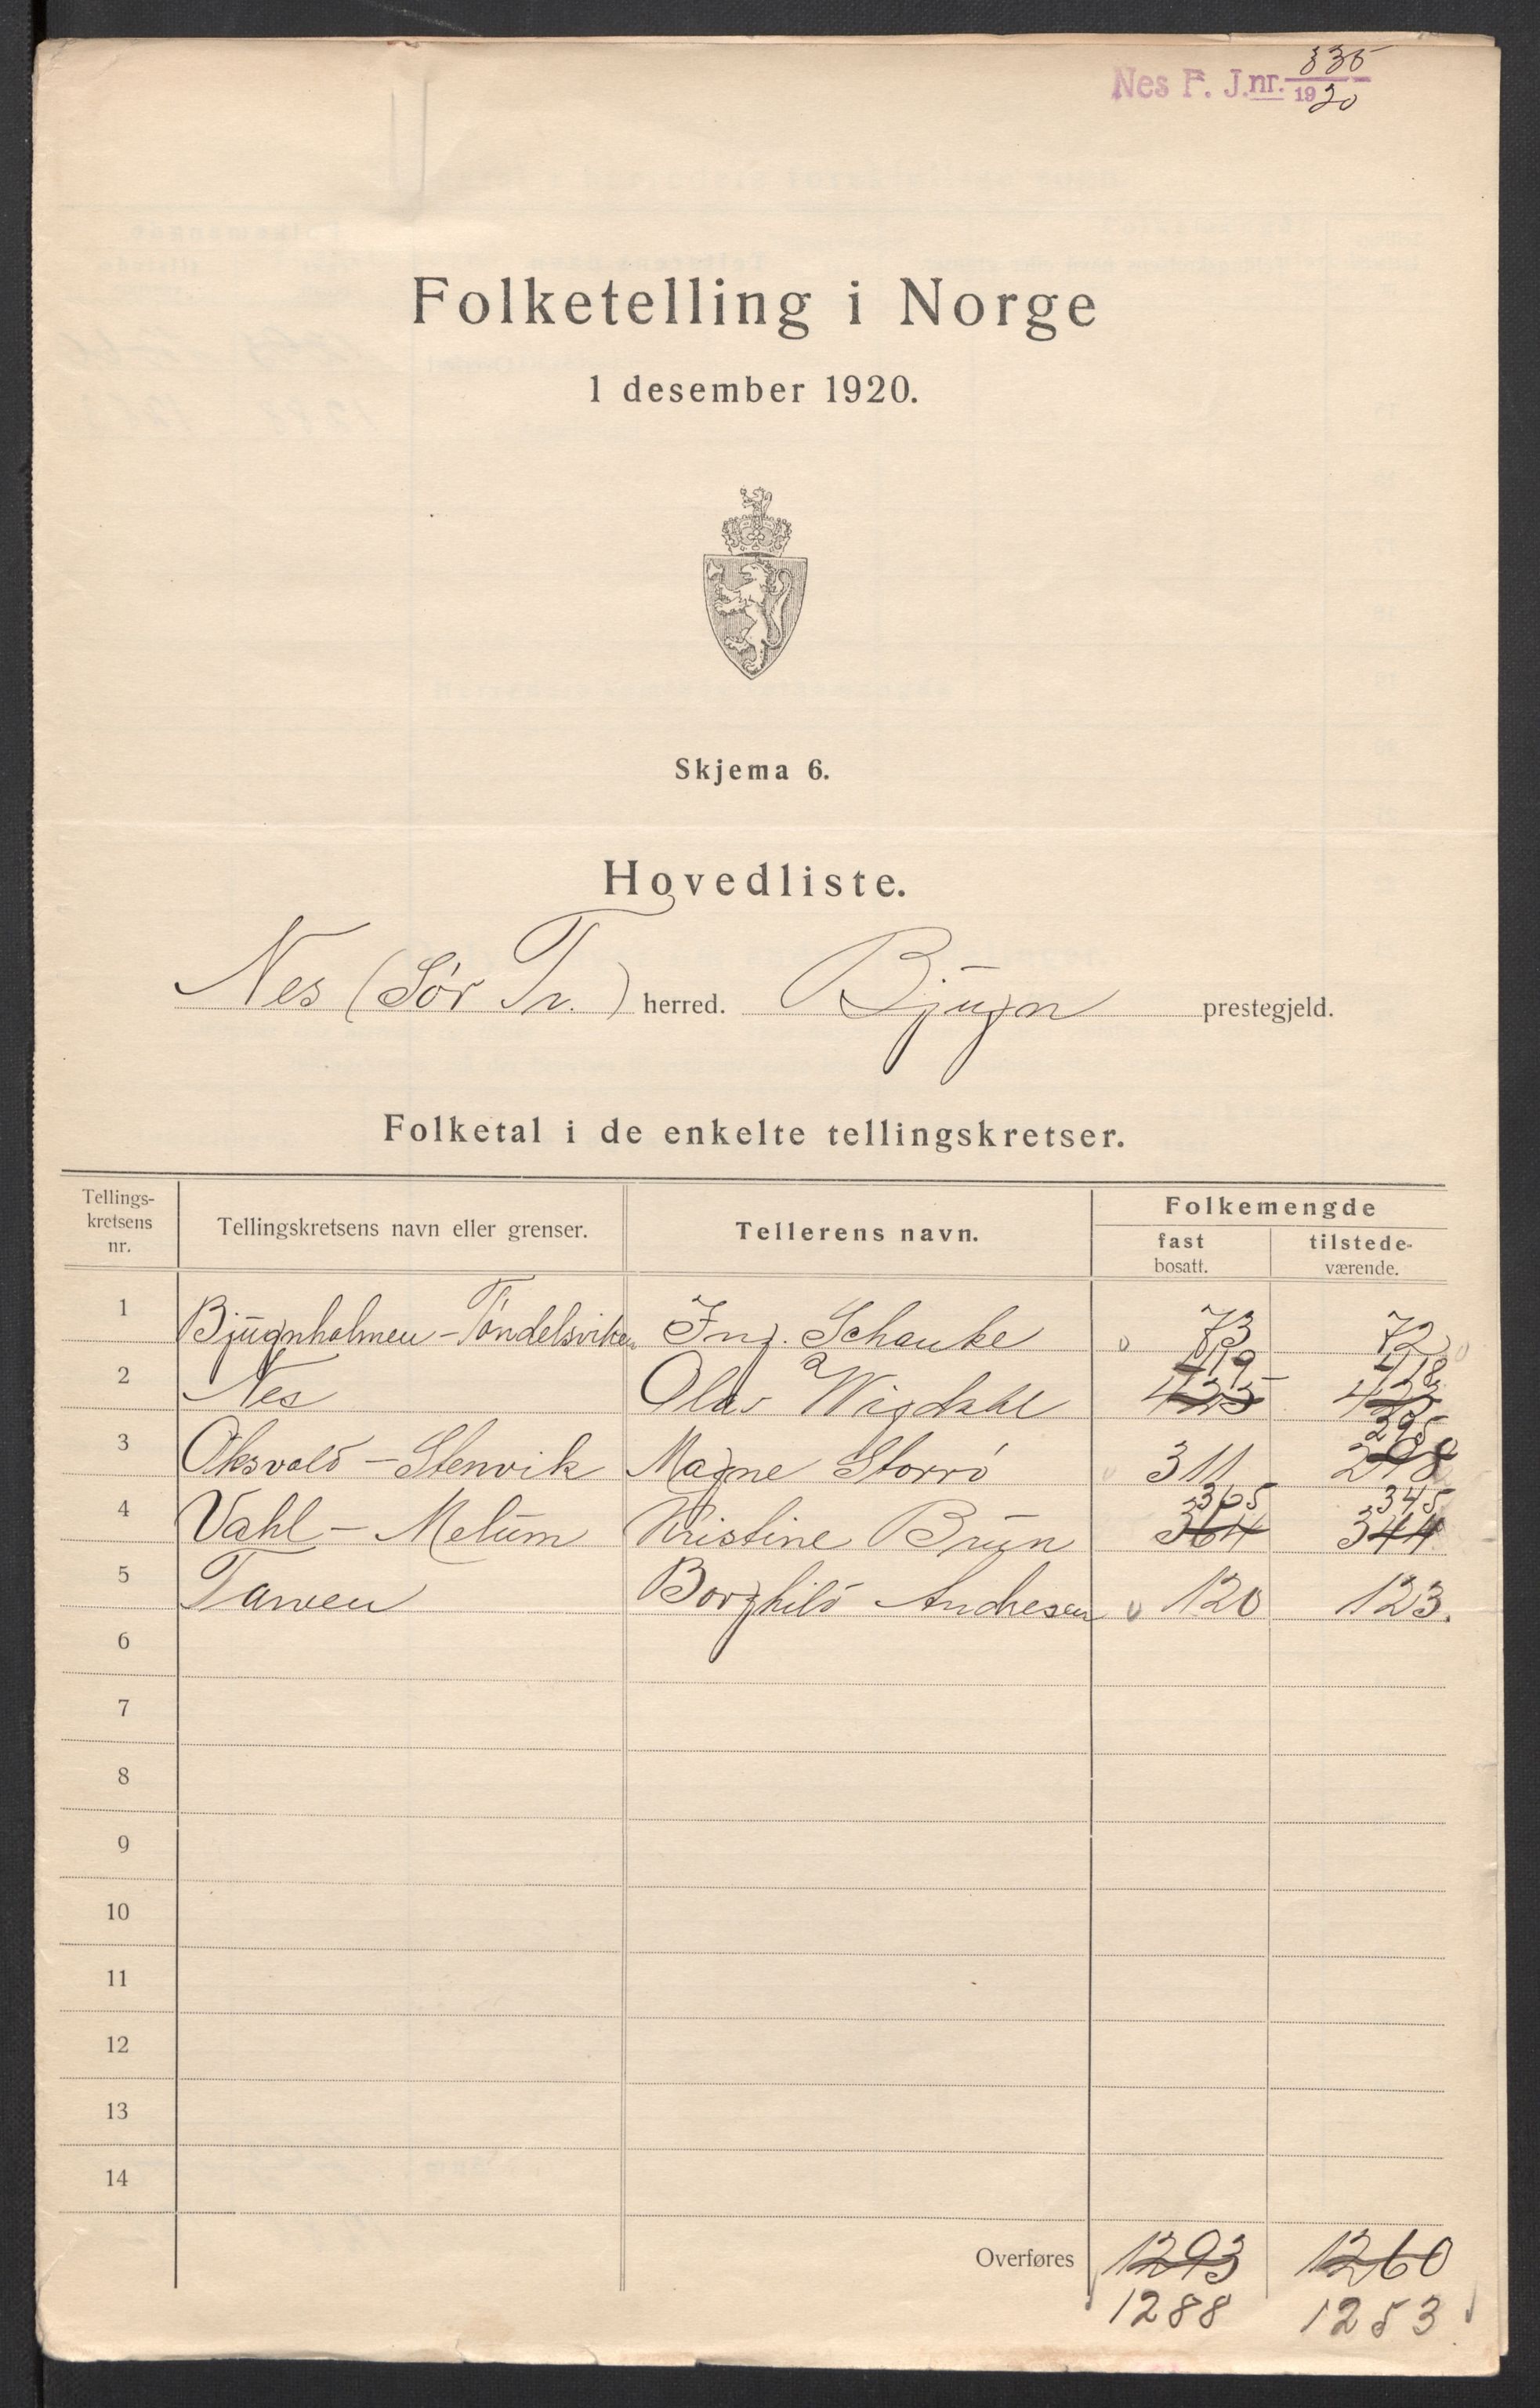 Nes F. J.nr. 335
1920
Folketelling i Norge
1 desember 1920.
Skjema 6.
Hovedliste.
Nes (Sör Tr.) herred. Bjugn prestegjeld.
Folketal i de enkelte tellingskretser.
Tellings-kretsens nr. Tellingskretsens navn eller grenser. Tellerens navn. Folkemengde fast bosatt. tilstede-værende.
1 Bjugnholmen - Töndelsviken Ing. Schanke 73 72
419 418
2 Nes Olav Wigdahl 425 423
295
3 Oksvold - Stenvik Magne Storrö 311 298
365 345
4 Vahl - Melum Kristine Brun 364 344
5 Tarven Borghild Andresen 120 123.
6
7
8
9
10
11
12
13
14
Overføres 1293 1260
1288 1253